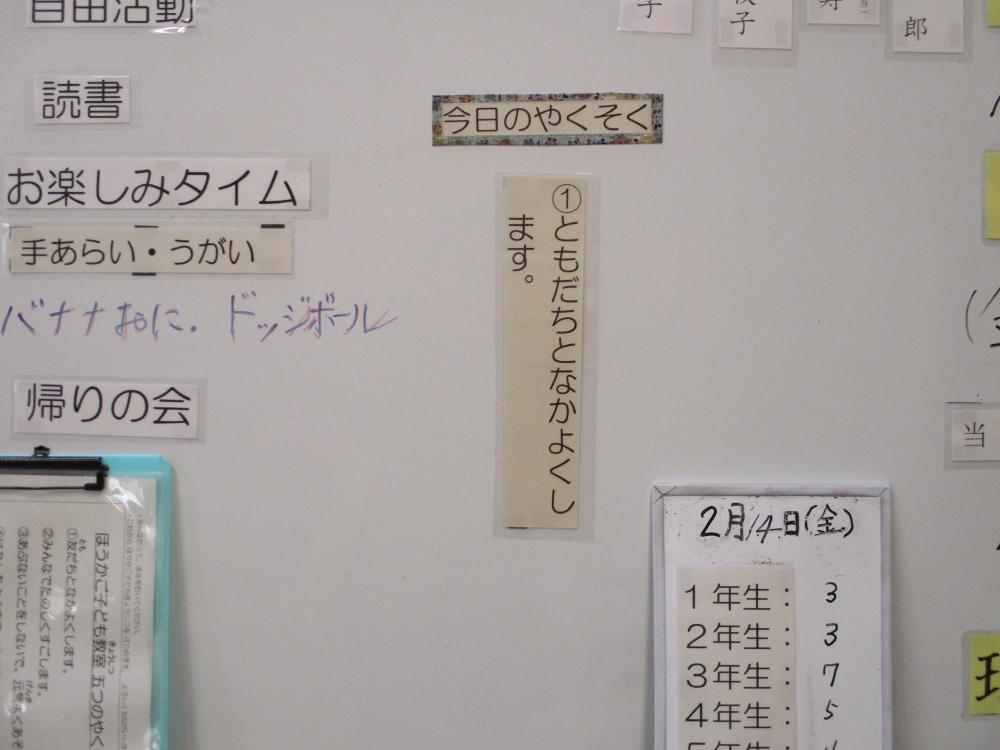 自由活動
読書
お楽しみタイム
手あらい・うがい
バナナおに.ドッジボール
帰りの会
今日のやくそく
①ともだちとなかよくし
ます。
子
子
郎
当
2月14日(金)
1年生： 3
2年生： 3
3年生： 7
4年生： 5
ほうかご子ども教室 五つのやく
きょうしつ
①友だちとなかよくします。
とも
②みんなでたのしくすごします。
③あぶないことをしないで、元気よくあそ
げんき